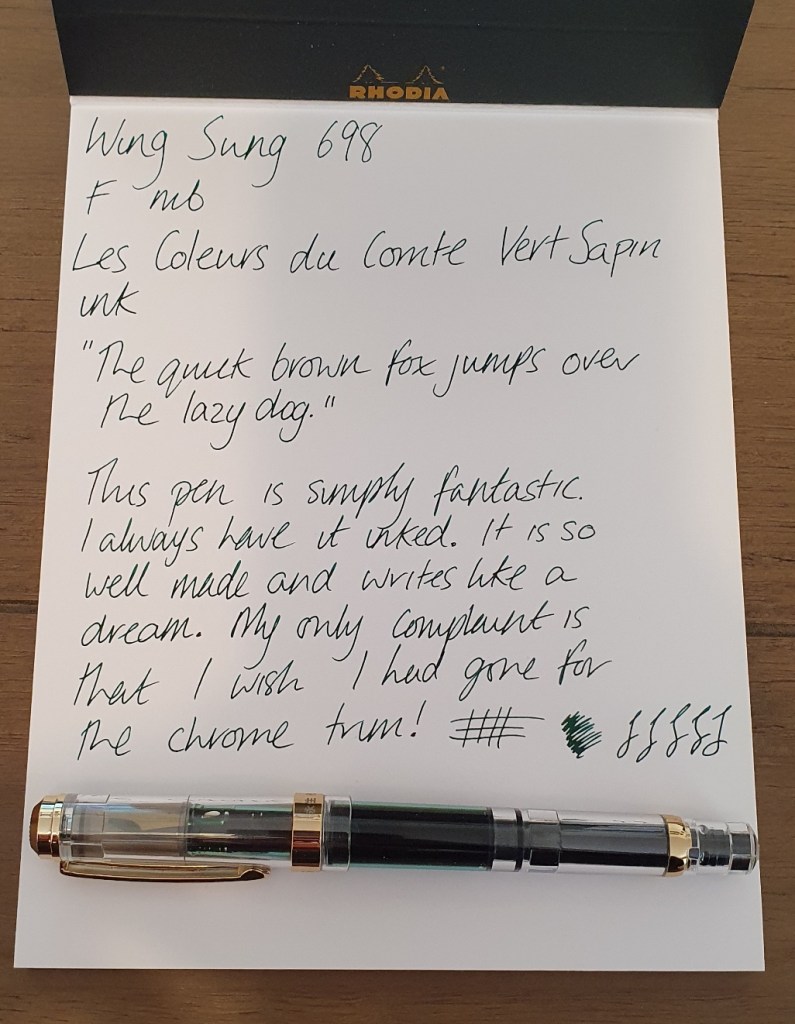 RHODIA
Wing Sung 698
F nib
Les Coleurs du Comte Vert Sapin
ink
"The quick brown fox jumps over
the lazy dog."
This pen is simply fantastic.
I always have it inked. It is so
well made and writes like a
dream. My only complaint is
that I wish I had gone for
the chrome trim!